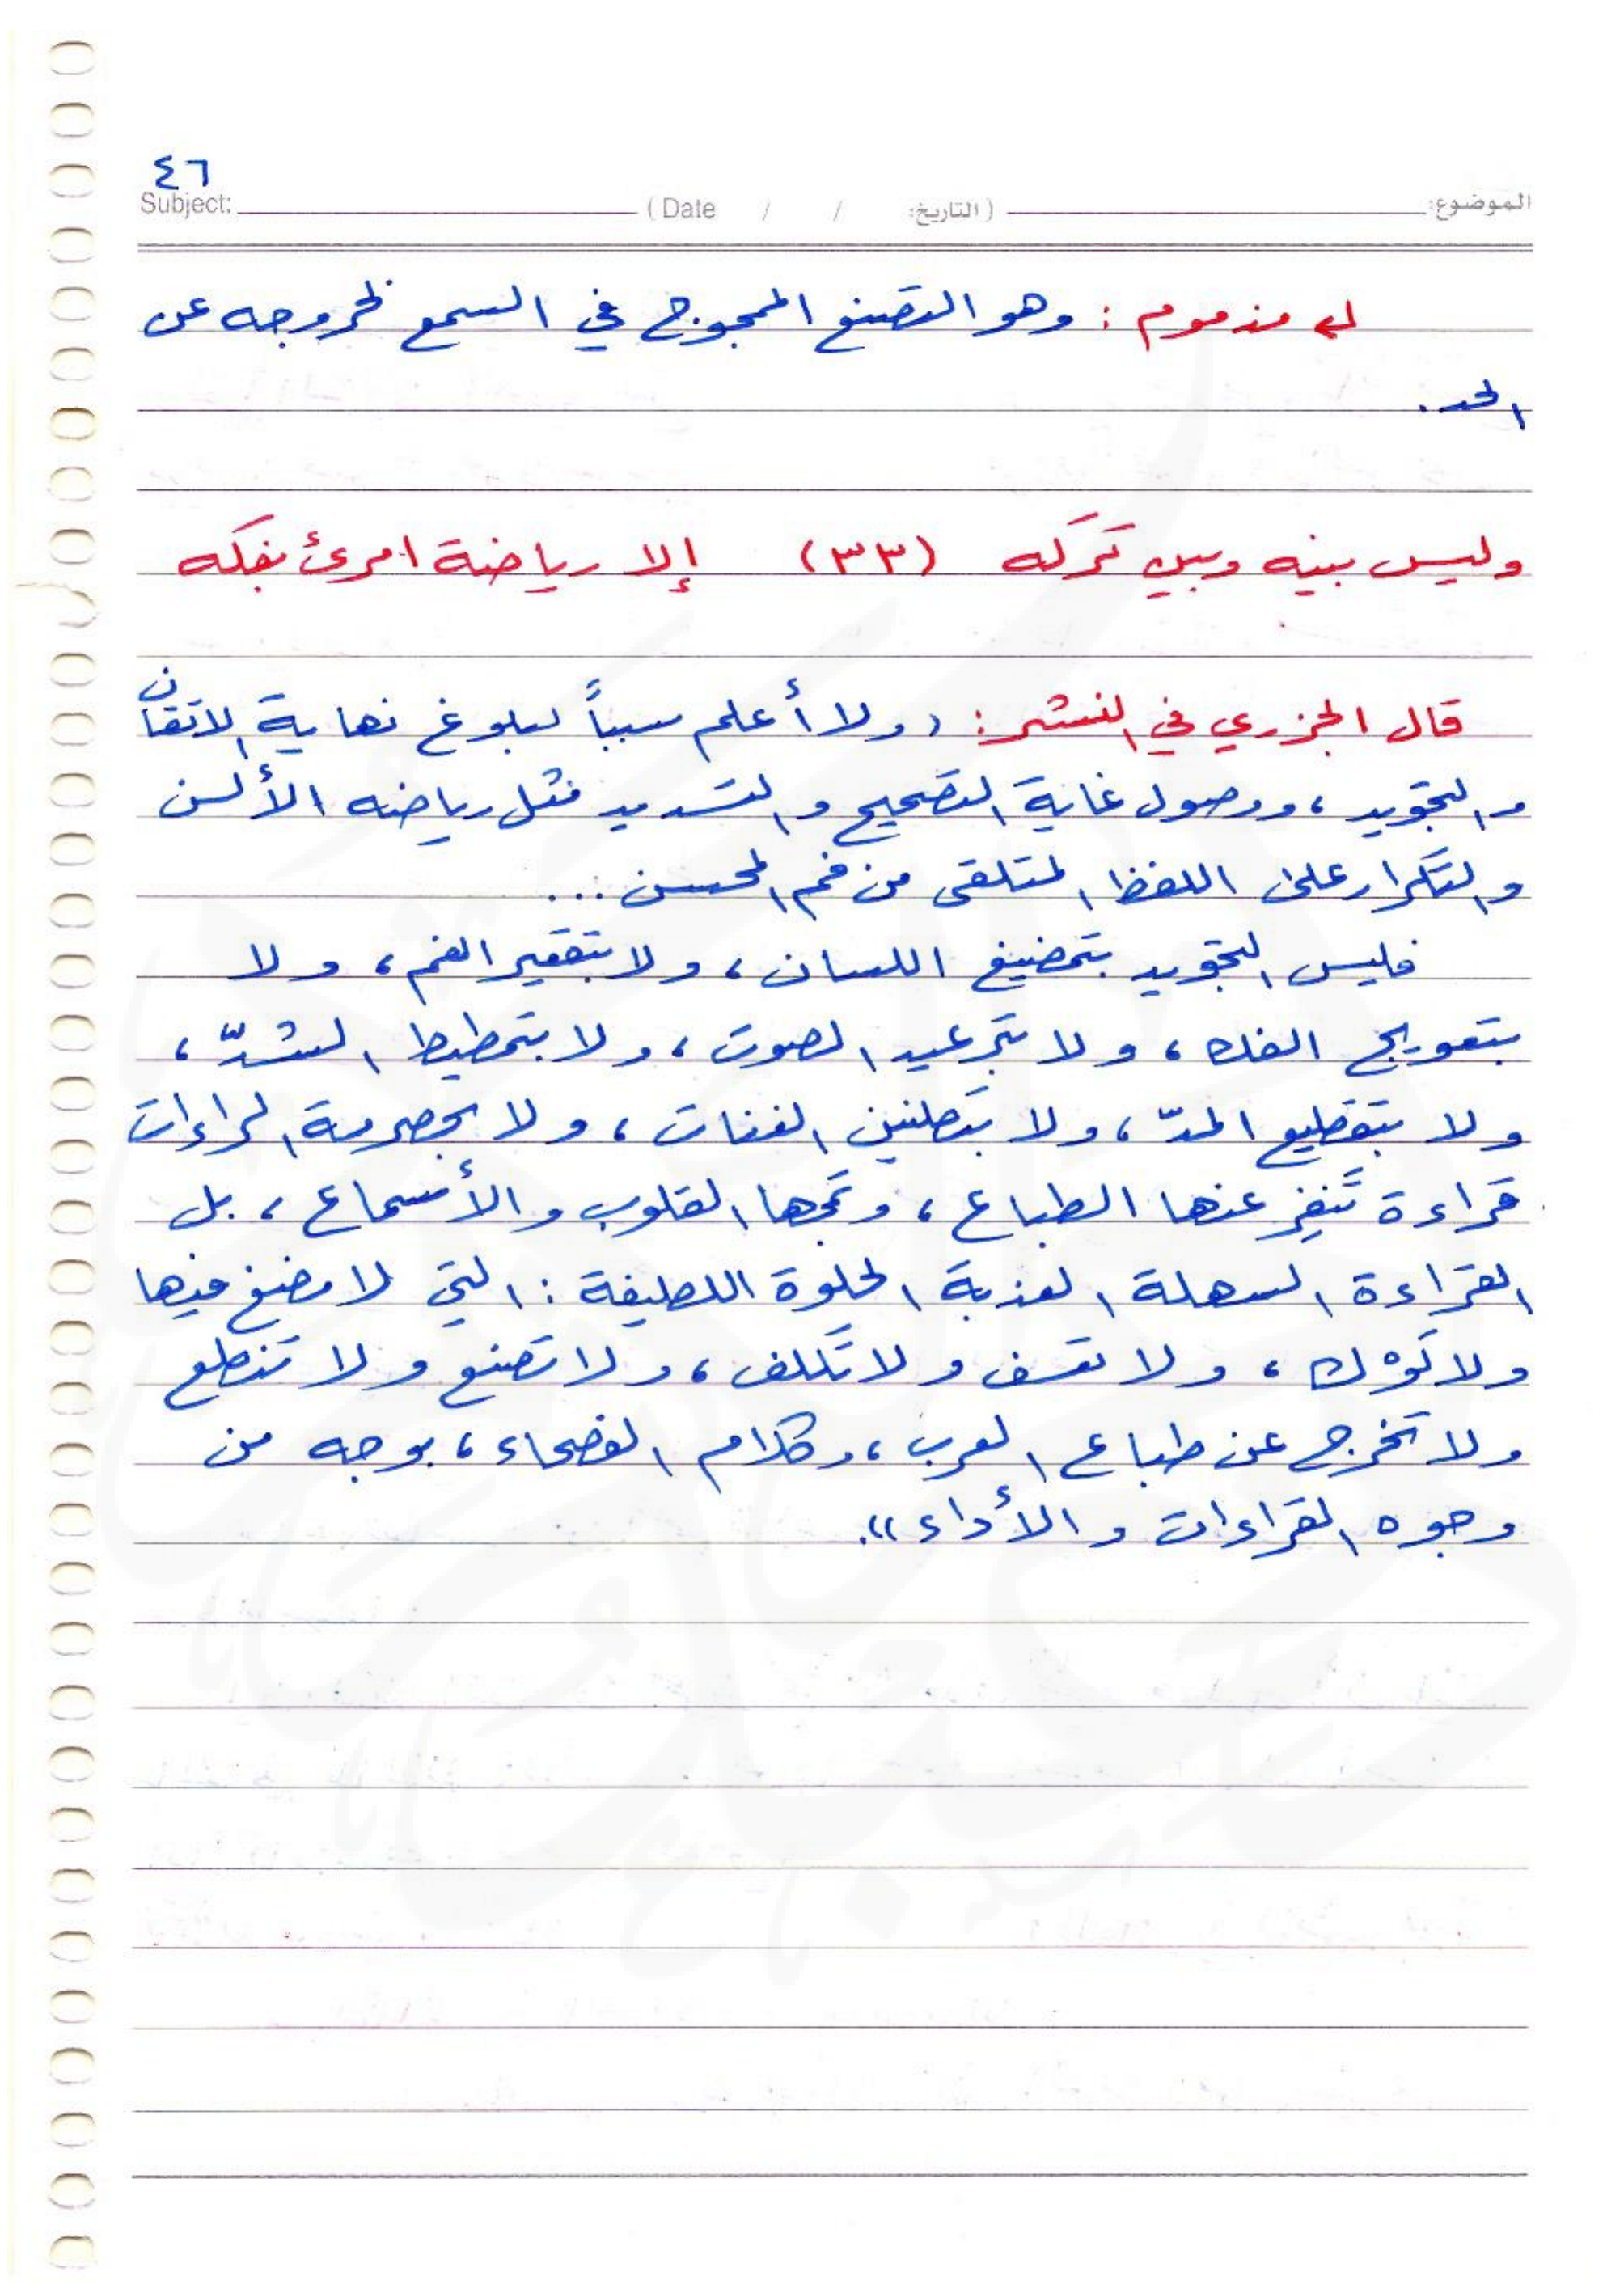 ٤٦
الموضوع: (التاريخ: / / Date) Subject:
مذموم : وهو التصنع الممجوج في السمع لخروجه عن
الحد .
وليس بينه وبين تركه (٣٣) إلا رياضة امرئ بفكه
قال الجزري في النشر : (( ولا أعلم سبباً لبلوغ نهاية الاتقان
والتجويد ، ووصول غاية التصحيح والتسديد مثل رياضه الألسن
والتكرار على اللفظ المتلقى من فم المحسن ...
فليس التجويد بتمضيغ اللسان ، ولا بتقعير الفم ، ولا
بتعويج الفك ، ولا بترعيد الصوت ، ولا بتمطيط الشدّ ،
ولا بتقطيع المدّ ، ولا بتطنين الغنات ، ولا بحصرمة الراءات
قراءة تنفر عنها الطباع ، وتمجها القلوب والأسماع ، بل
القراءة السهلة العذبة الحلوة اللطيفة : التي لا مضغ فيها
ولا لوك ، ولا تعسف ولا تكلف ، ولا تصنع ولا تنطع
ولا تخرج عن طباع العرب ، وكلام الفصحاء ، بوجه من
وجوه القراءات والأداء )) .